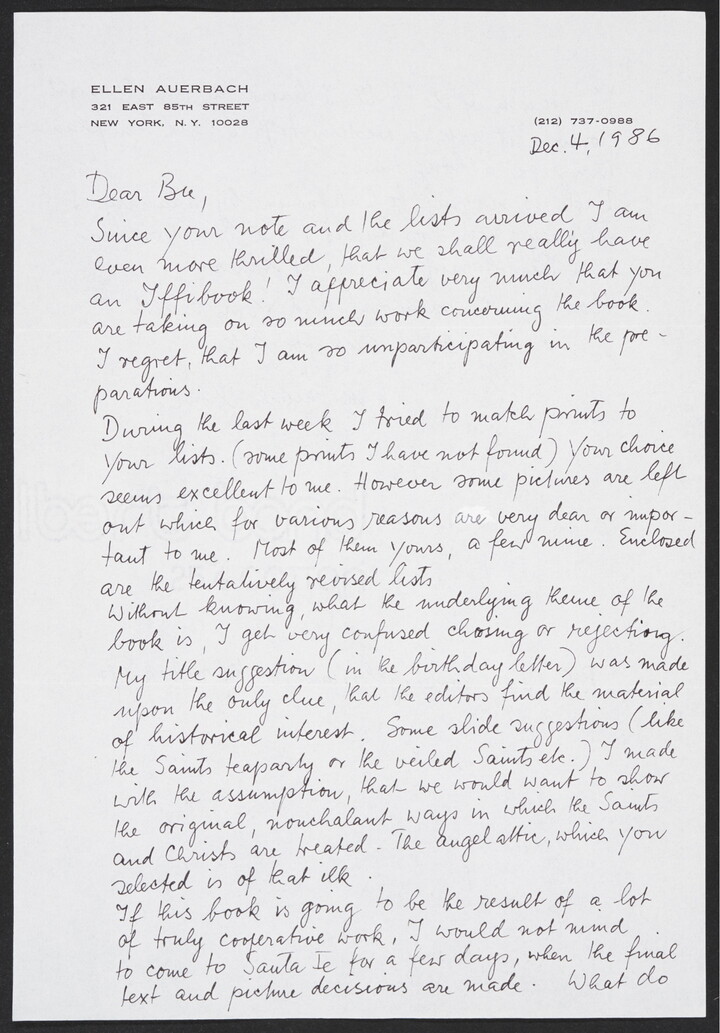 ELLEN AUERBACH
321 EAST 85TH STREET
NEW YORK, N.Y. 10028
(212) 737-0988
Dec. 4, 1986
Dear Bu,
Since your note and the lists arrived I am
even more thrilled, that we shall really have
an Iffibook! I appreciate very much that you
are taking on so much work concerning the book.
I regret, that I am so unparticipating in the pre-
parations.
During the last week I tried to match prints to
your lists. (some prints I have not found) Your choice
seems excellent to me. However some pictures are left
out which for various reasons are very dear or impor-
tant to me. Most of them yours, a few mine. Enclosed
are the tentatively revised lists
Without knowing, what the underlying theme of the
book is, I get very confused chosing or rejecting.
My title suggestion (in the birthday letter) was made
upon the only clue, that the editors find the material
of historical interest. Some slide suggestions (like
the Saints teaparty or the veiled Saints etc.) I made
with the assumption, that we would want to show
the original, nonchalant ways in which the Saints
and Christs are treated - The angel attic, which you
selected is of that ilk.
If this book is going to be the result of a lot
of truly cooperative work, I would not mind
to come to Santa Fe for a few days, when the final
text and picture decisions are made. What do